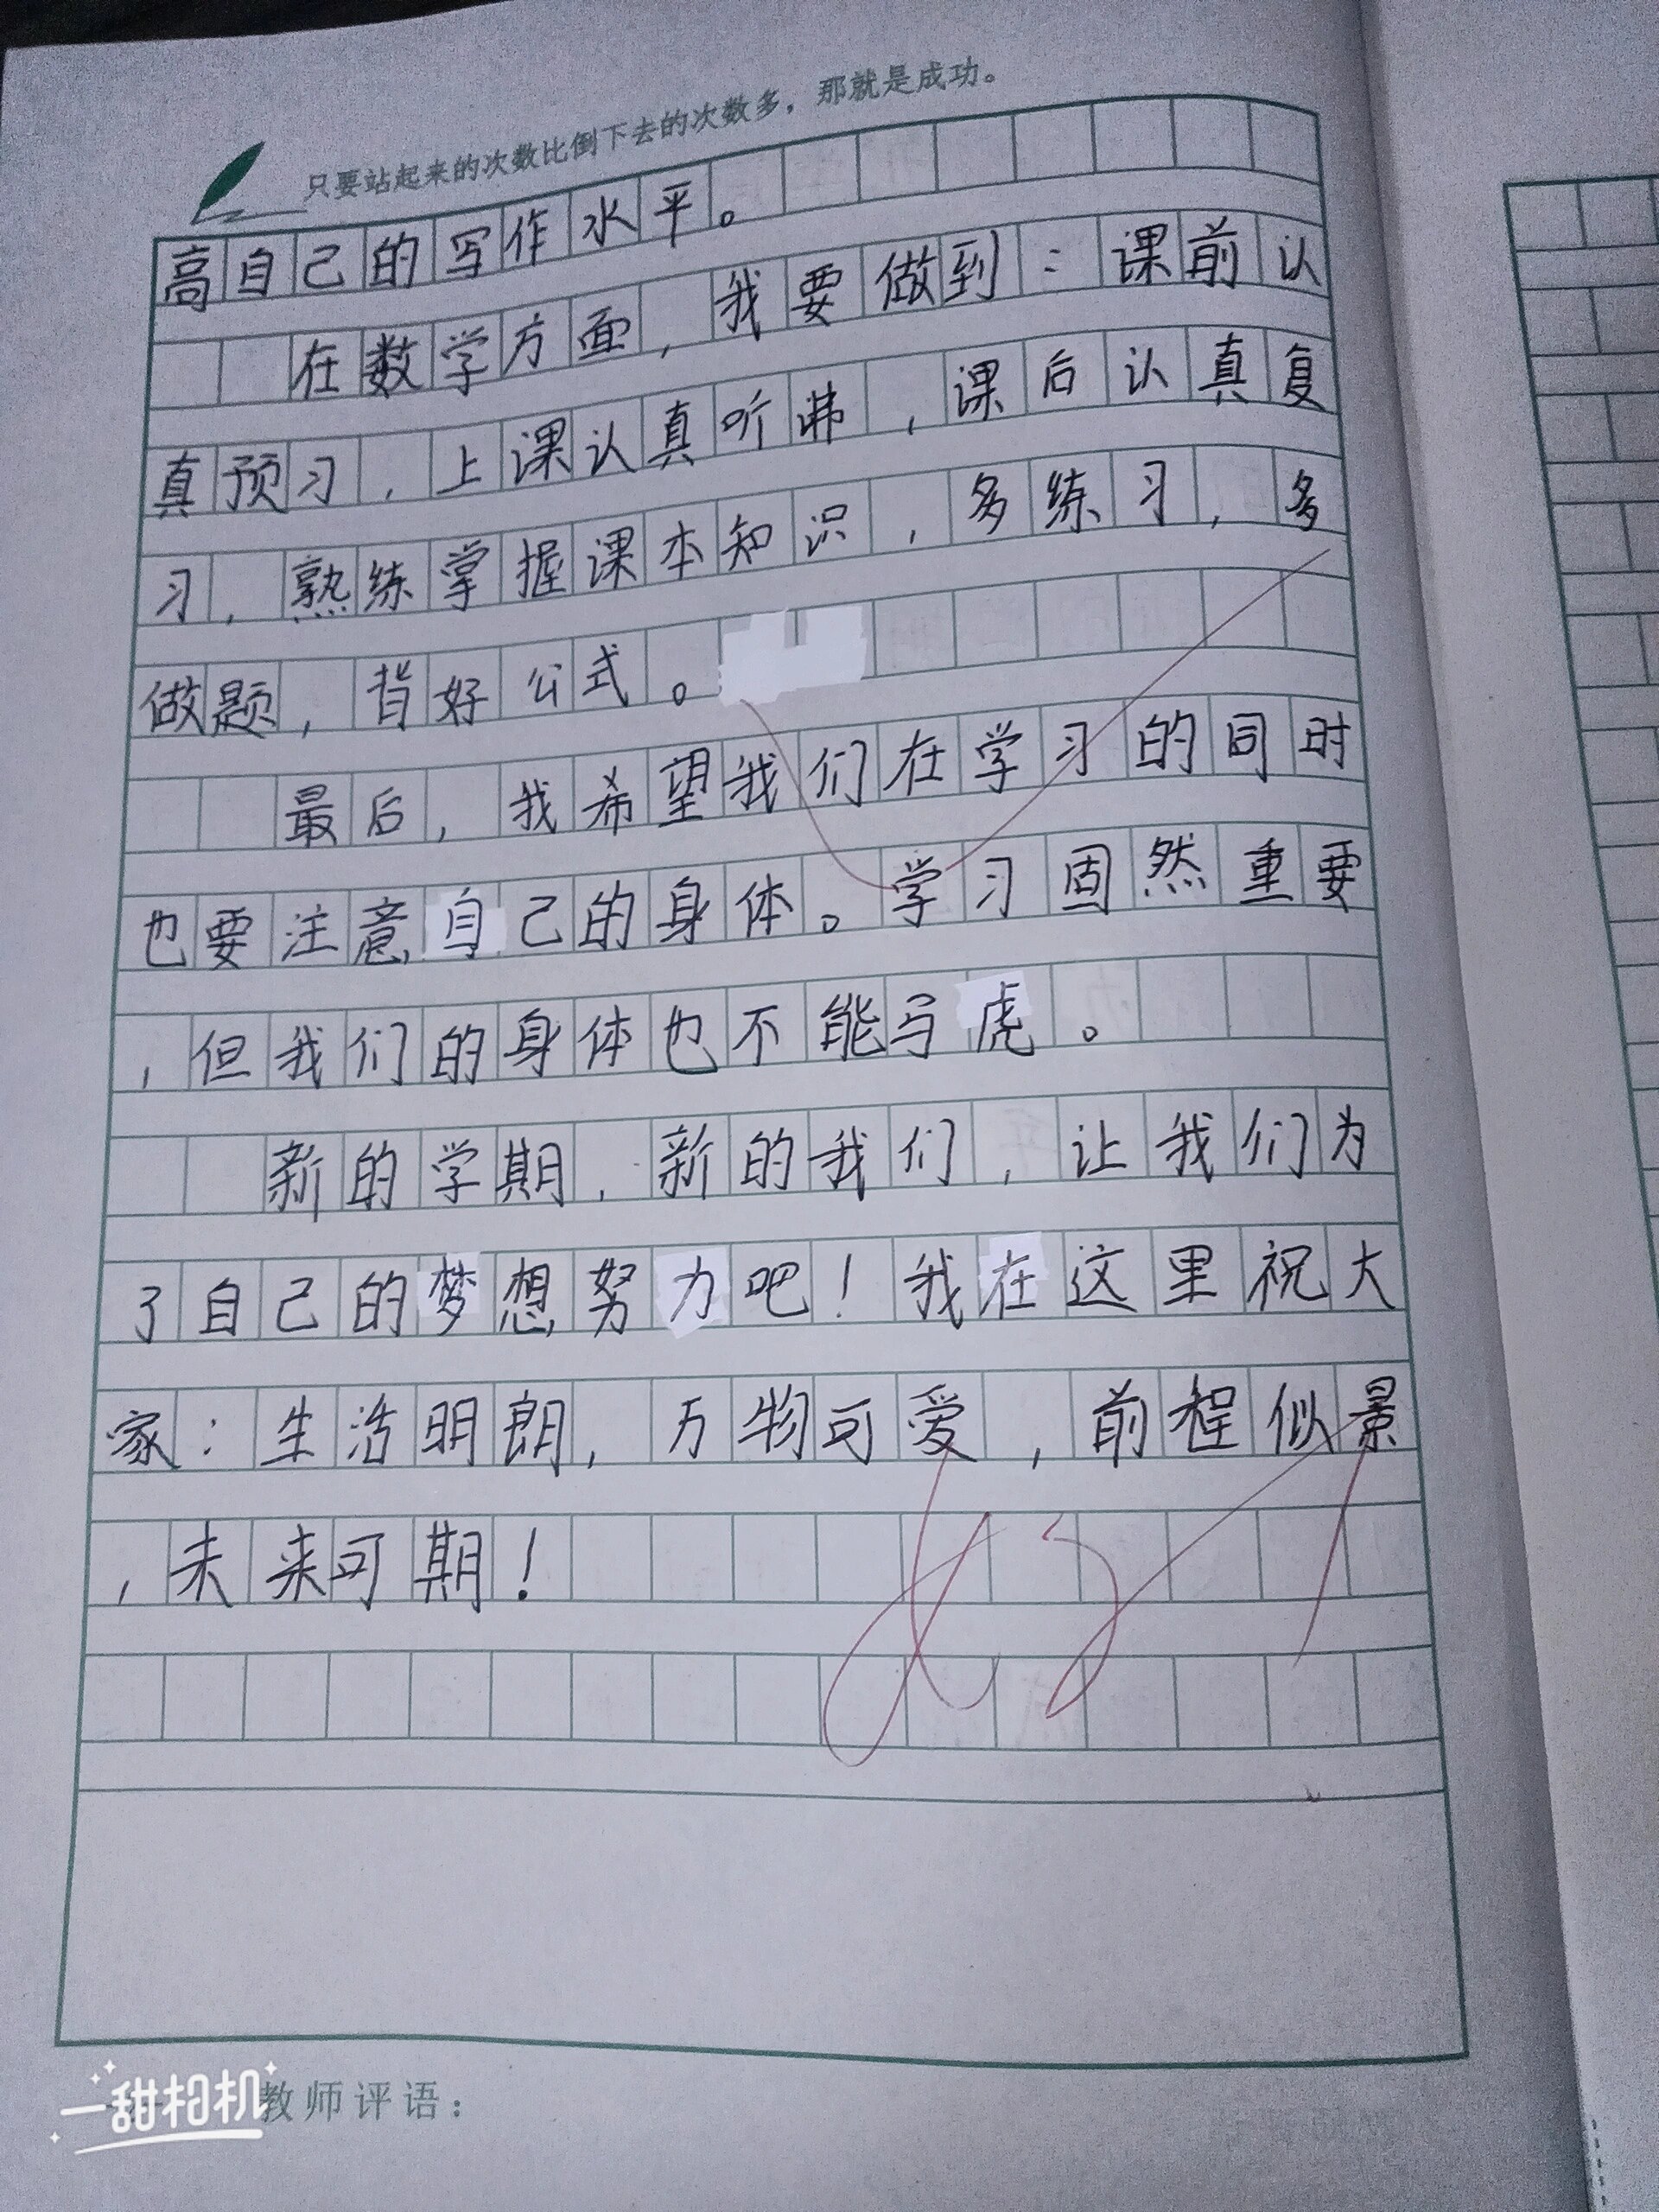 只要站起来的次数比倒下去的次数多，那就是成功。
高自己的写作水平。
在数学方面，我要做到：课前认
真预习，上课认真听讲，课后认真复
习，熟练掌握课本知识，多练习，多
做题，背好公式。
最后，我希望我们在学习的同时
也要注意自己的身体。学习固然重要
，但我们的身体也不能马虎。
新的学期，新的我们，让我们为
了自己的梦想努力吧！我在这里祝大
家：生活明朗，万物可爱，前程似景
，未来可期！
教师评语：
一甜相机